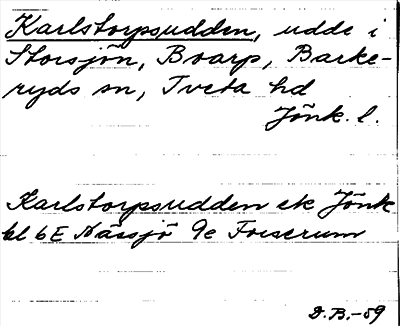 Karlstorpsudden, udde i
Storsjön, Boarp, Barke-
ryds sn, Tveta hd
Jönk. l.
Karlstorpsudden ek Jönk
bl 6E Nässjö 9e Forserum
D.B.-59